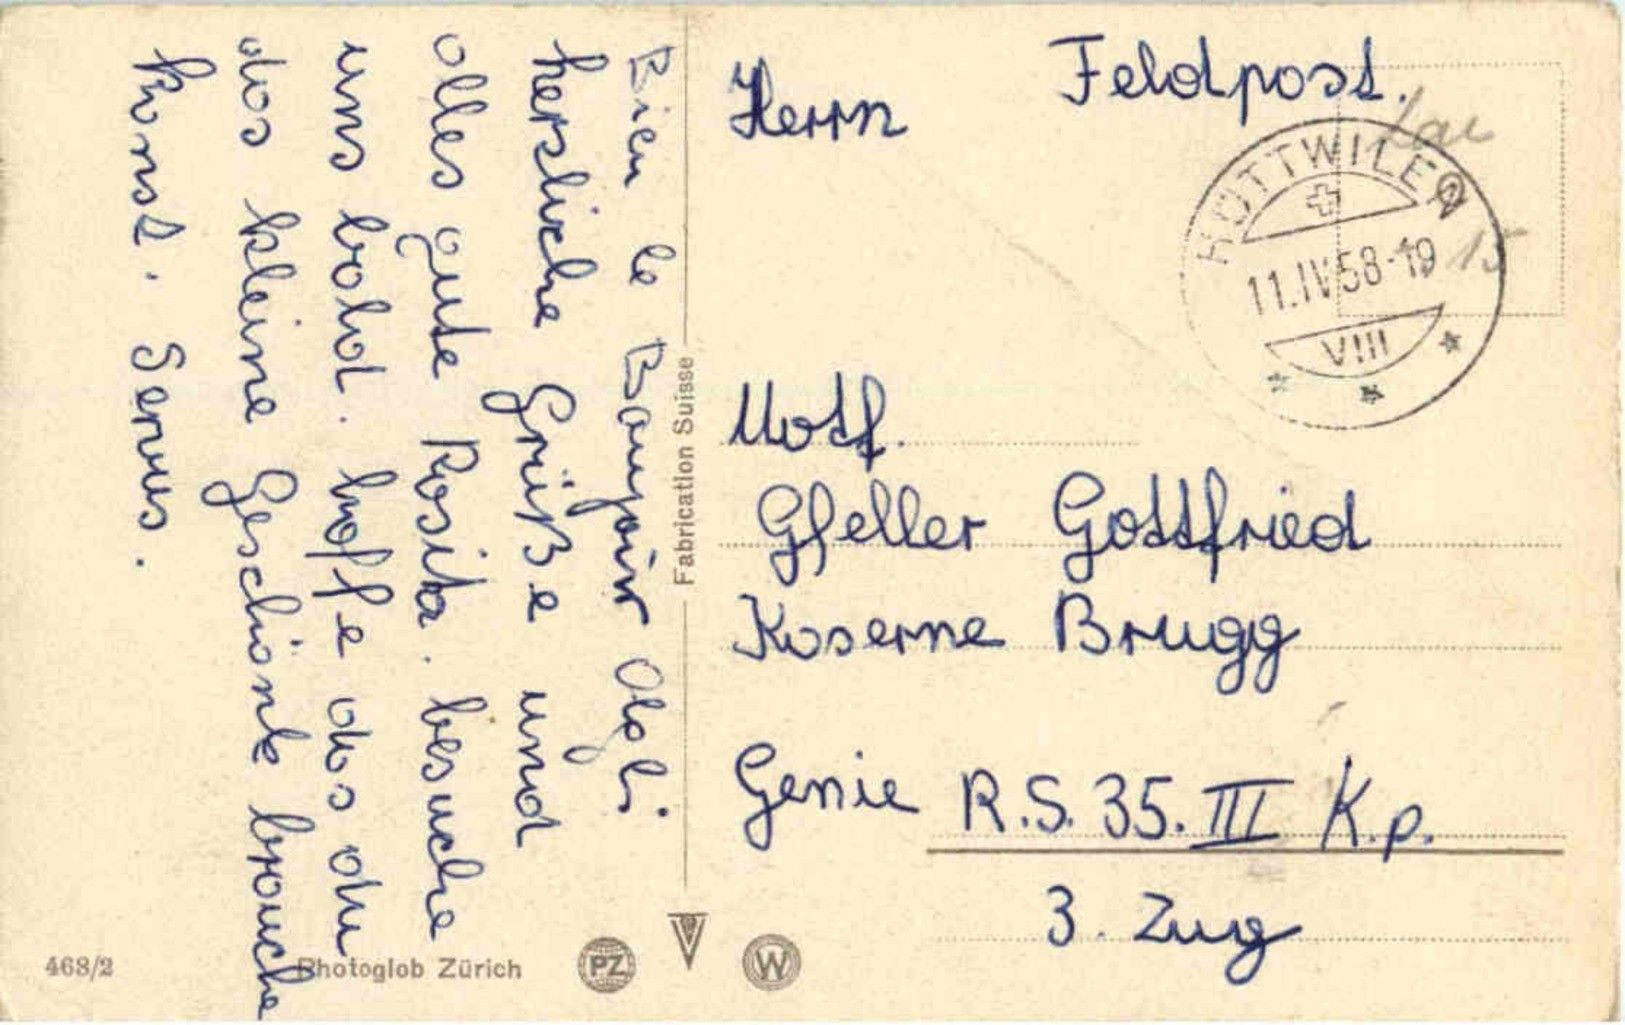 Bien le Bonjour Olgli.
herzliche Grüße und
alles gute Rosita. besuche
uns bald. hoffe das du
das kleine Geschänk brauche
kanst. Servus.
Fabrication Suisse
468/2
Photoglob Zürich
PZ
W
Feldpost.
Herrn
HÜTTWILEN
11.IV.58-19
VIII
15
Motf.
Gfeller Gottfried
Kaserne Brugg
Genie R.S. 35. III K.p.
3. Zug